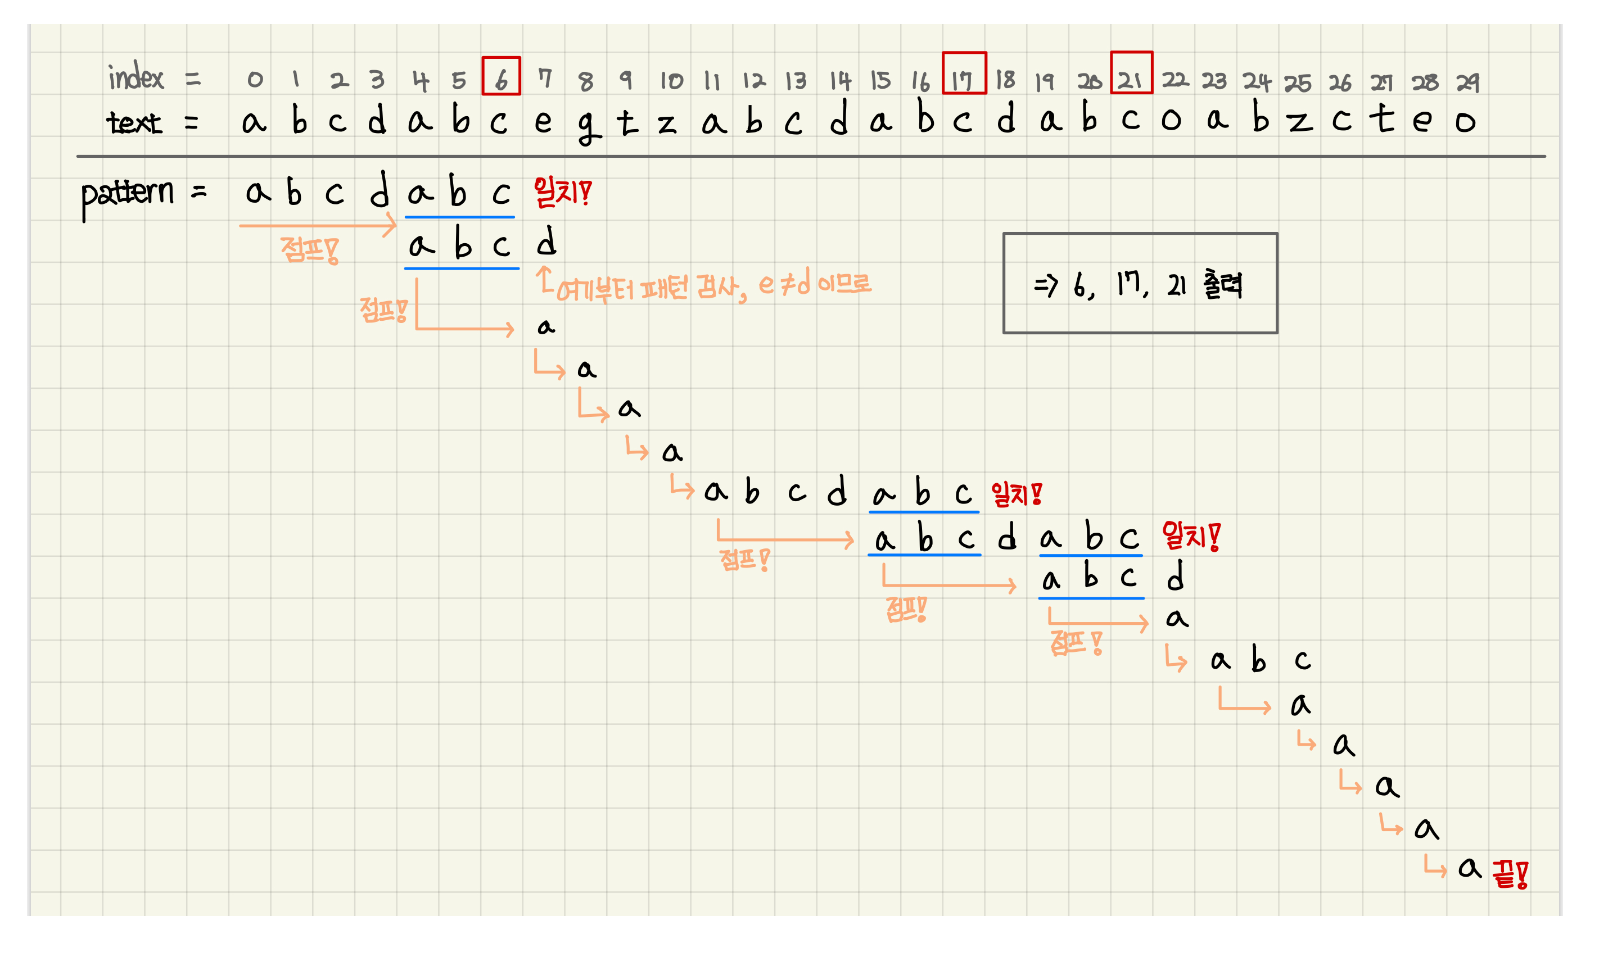 index = 0 1 2 3 4 5 6 7 8 9 10 11 12 13 14 15 16 17 18 19 20 21 22 23 24 25 26 27 28 29
text = a b c d a b c e g t z a b c d a b c d a b c o a b z c t e o
pattern = a b c d a b c 일치!
점프! a b c d
여기부터 패턴 검사, e≠d 이므로
=> 6, 17, 21 출력
점프! a
a
a
a
a b c d a b c 일치!
점프! a b c d a b c 일치!
점프! a b c d
점프! a
a b c
a
a
a
a
a 끝!